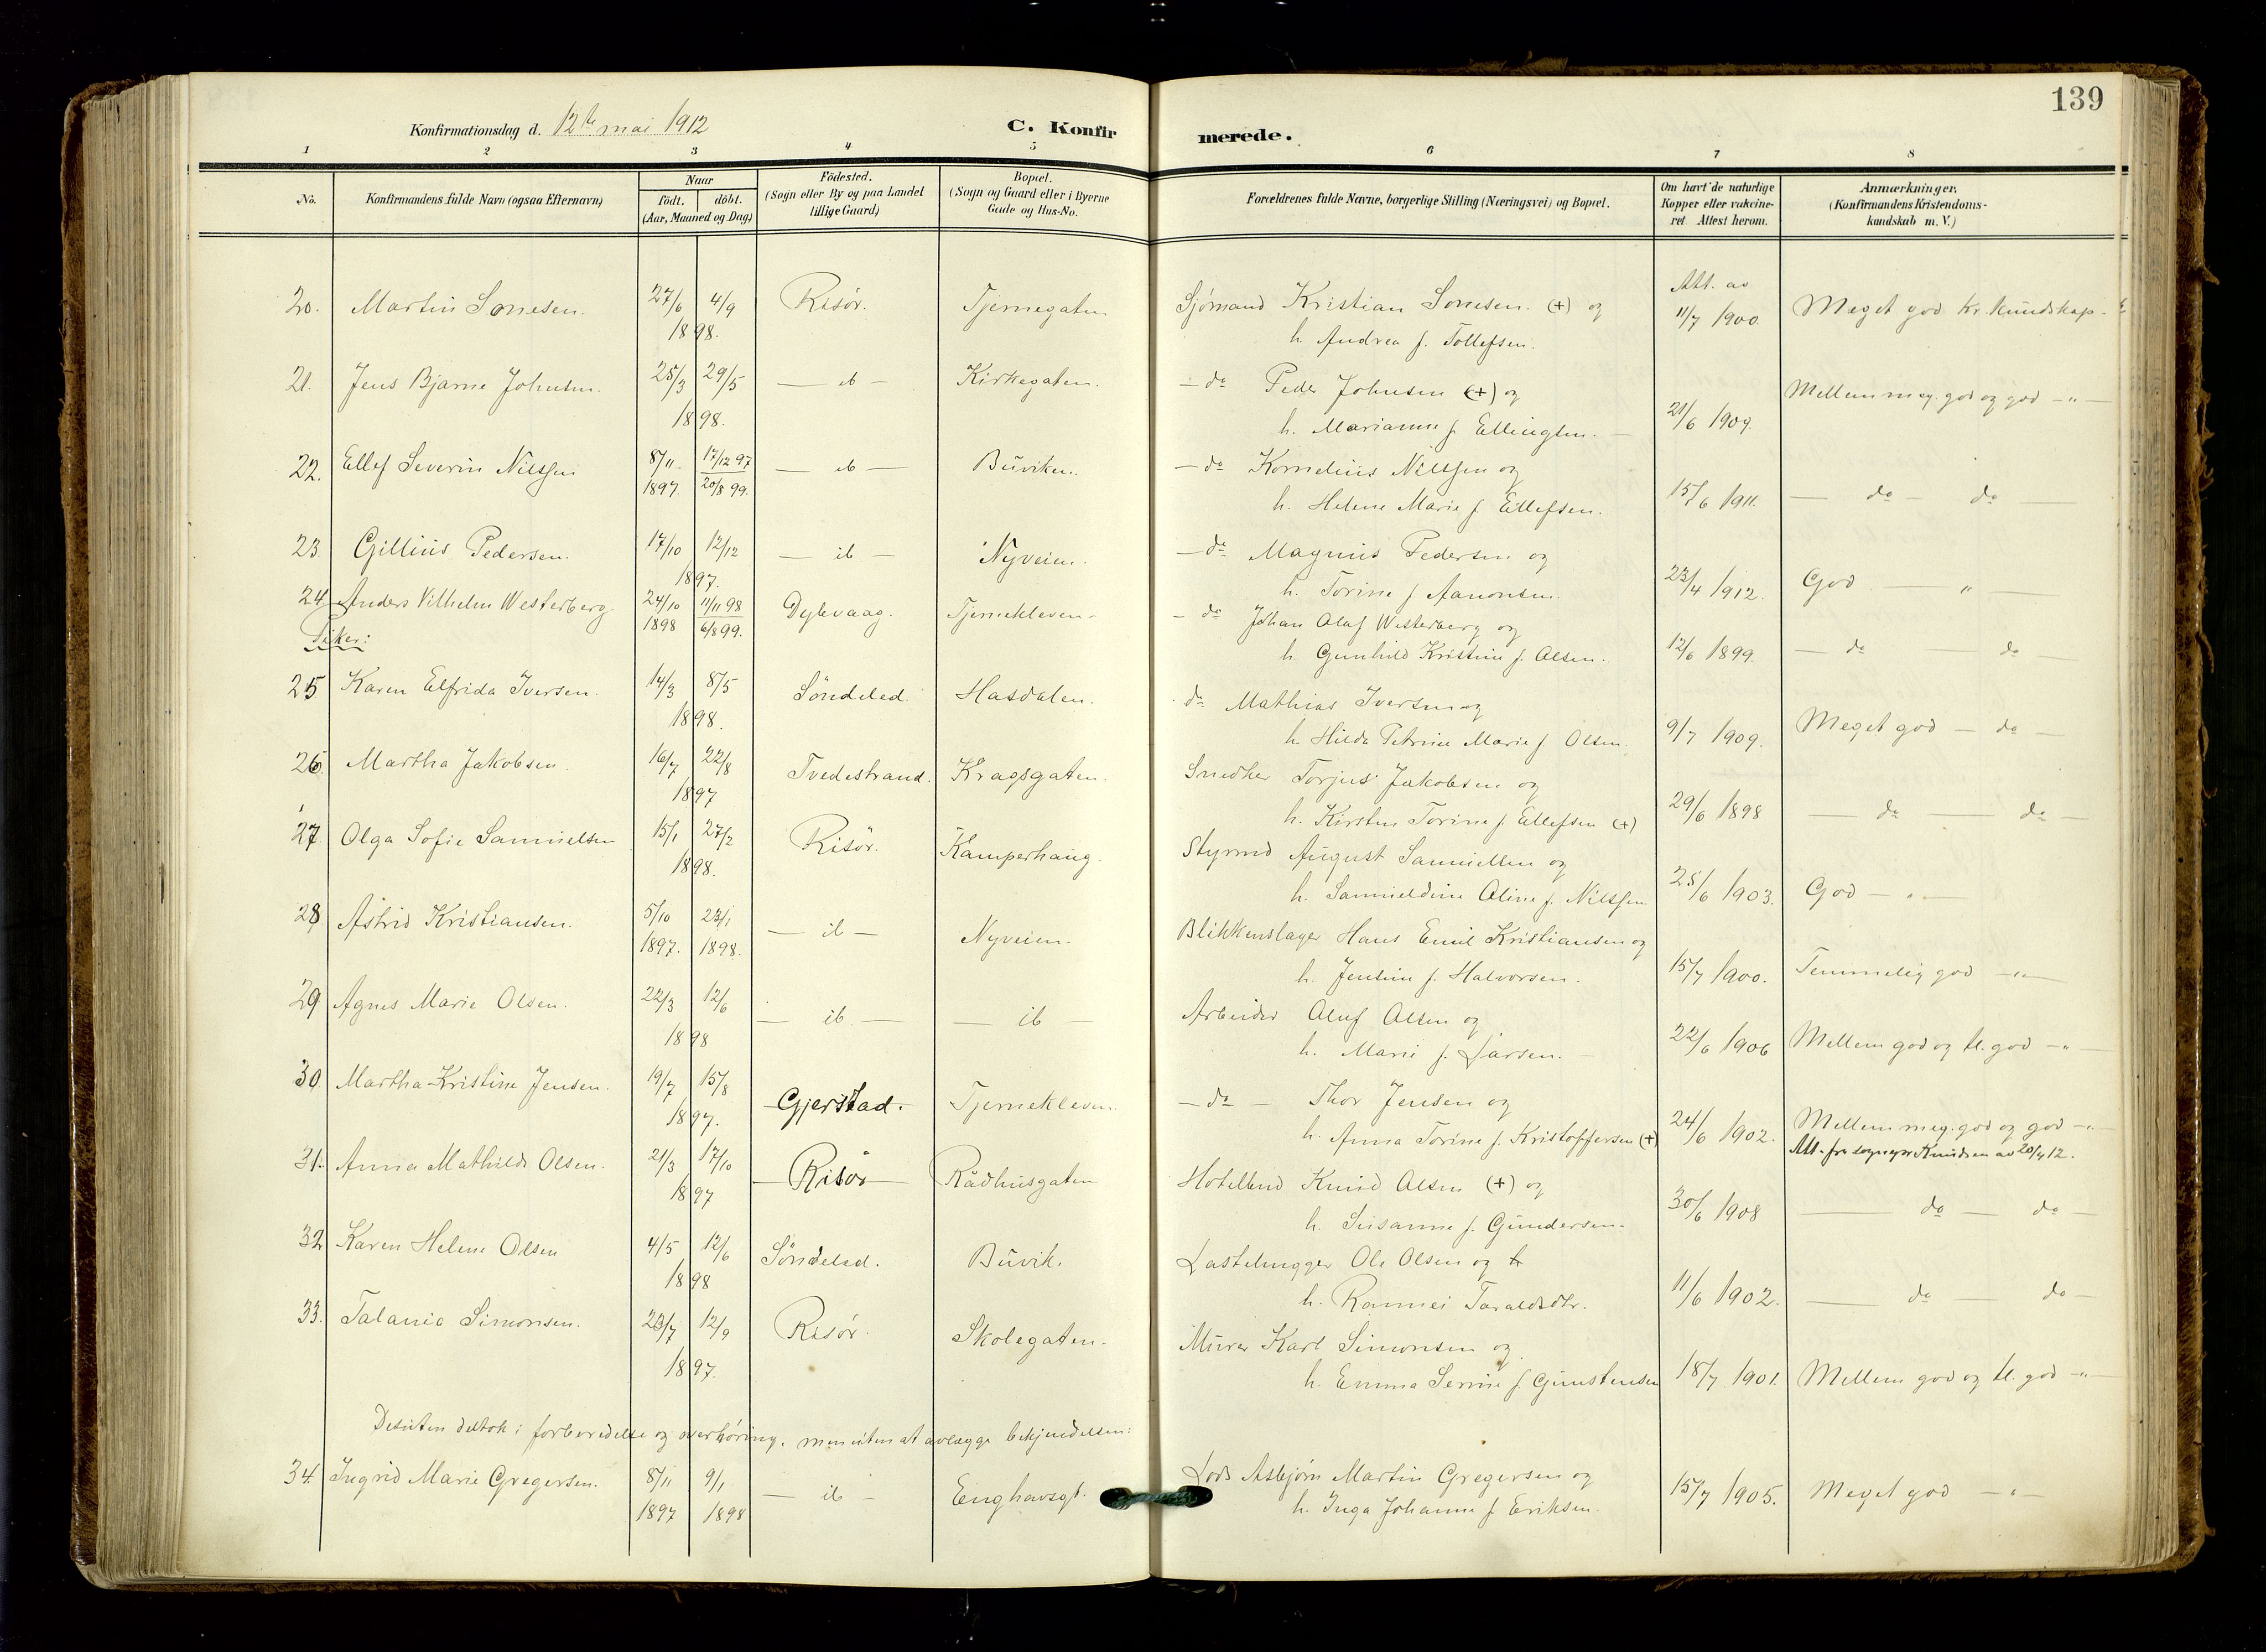 139
Konfirmationsdag d. 12te mai 1912
C. Konfirmerede.
1 2 3 4 5 6 7 8
No.
Konfirmandens fulde Navn (ogsaa Efternavn)
Naar
födt. döbt.
(Aar, Maaned og Dag)
Födested.
(Sogn eller By og paa Landet
tillige Gaard)
Bopæl.
(Sogn og Gaard eller i Byerne
Gade og Hus-No.
Forældrenes fulde Navne, borgerlige Stilling (Næringsvei) og Bopæl.
Om havt de naturlige
Kopper eller vakcine-
ret Attest herom.
Anmærkninger.
(Konfirmandens Kristendoms-
kundskab m. V.)
20. Martin Sonesen. 27/6 4/9 1898. Risör. Tjernegaten Sjömand Kristian Sonesen. (+) og Att. av 11/7 1900. Meget god kr. kundskap.
h. Andrea f. Tollefsen.
21. Jens Bjarne Johnsen. 25/3 29/5 1898. — ib — Kirkegaten. — do Peder Johnsen (+) og 21/6 1909. Mellem meg. god og god — " —
h. Marianne f. Ellingsen. —
22. Ellef Severin Nilssen 8/11 1897. 17/12 97 20/8 99. — ib — Buviken. — do Kornelius Nilssen og 15/6 1911. — do — do —
h. Helene Marie f. Ellefsen.
23. Gillius Pedersen. 17/10 12/12 1897. — ib — Nyveien. — do Magnus Pedersen og 23/4 1912. God — " —
h. Torine f. Aanonsen.
24. Anders Vilhelm Westerberg. 24/10 1898 11/11 98 6/8 99. Dybvaag. Tjernekleven. — do Johan Olaf Westerberg og 12/6 1899. — do — do —
h. Gunhild Kristine f. Olsen.
Piker:
25. Karen Elfrida Iversen. 14/3 8/5 1898. Söndeled. Hasdalen. do Mathias Iversen og 9/7 1909. Meget god — do —
h. Hilda Petrine Marie f. Olsen
26. Martha Jakobsen. 16/7 22/8 1897 Tvedestrand. Kragsgaten. Snedker Torjus Jakobsen og 29/6 1898 — do — do —
h. Kirsten Torine f. Ellefsen (+)
27. Olga Sofie Samuelsen 15/1 27/2 1898. Risör. Kamperhaug. Styrmd August Samuelsen og 25/6 1903. God — " —
h. Samueldine Oline f. Nilssen
28. Astrid Kristiansen. 5/10 1897. 23/1 1898. — ib — Nyveien. Blikkenslager Hans Emil Kristiansen og 15/7 1900. Temmelig god — " —
h. Jensine f. Halvorsen.
29. Agnes Marie Olsen. 22/3 12/6 1898 — ib — — ib — Arbeider Oluf Olsen og 22/6 1906 Mellem god og tl. god — " —
h. Marie f. Larsen. —
30. Martha Kristine Jensen. 19/7 15/8 1897. Gjerstad. Tjernekleven. — do — Thor Jensen og 24/6 1902. Mellem meg. god og god — " —
h. Anna Torine f. Kristoffersen (+) Att. fra sognepr Knudsen av 20/4 12.
31. Anna Mathilde Olsen. 21/3 17/10 1897 Risör Rådhusgaten Hotelbud Knud Olsen (+) og 30/6 1908 — do — do —
h. Susanne f. Gundersen.
32. Karen Helene Olsen 4/5 12/6 1898 Söndeled. Buvik. Lastehugger Ole Olsen og 11/6 1902. — do — do —
h. Rannei Taraldsdtr.
33. Talanie Simonsen. 23/7 12/9 1897. Risör. Skolegaten. Murer Karl Simonsen og 18/7 1901. Mellem god og tl. god — " —
h. Emma Serine f. Gunstensen
Desuten deltok i forberedelse og overhöring, men uten at avlægge bekjendelsen:
34. Ingrid Marie Gregersen. 8/11 1897 9/1 1898 — ib — Enghavsgt. Lods Asbjörn Martin Gregersen og 15/7 1905. Meget god — " —
h. Inga Johanne f. Eriksen.